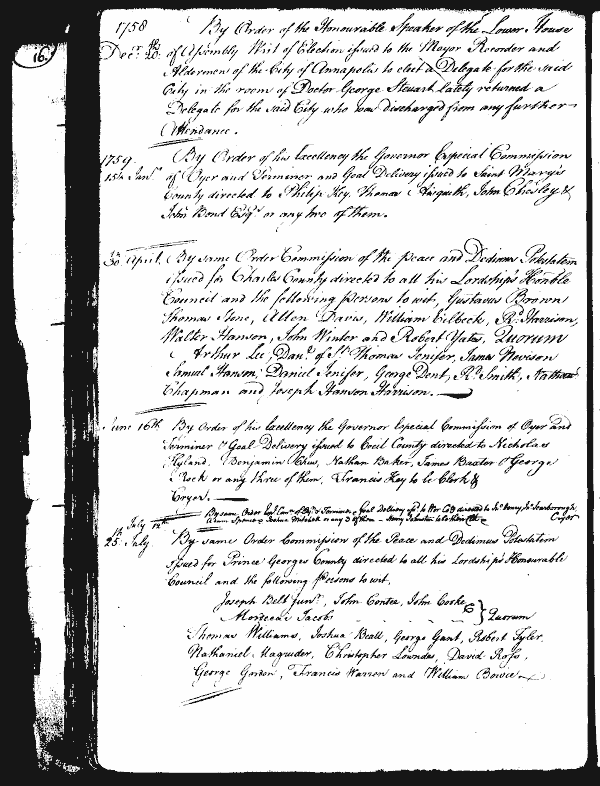 16.
1758 By Order of the Honourable Speaker of the Lower House
Decr. 20th of Assembly Writ of Election issued to the Mayor Recorder and
Aldermen of the City of Annapolis to elect a Delegate for the said
City in the room of Doctor George Steuart lately returned a
Delegate for the said City who was discharged from any further
Attendance.
1759 By Order of his Excellency the Governor Especial Commission
15th Janry. of Oyer and Terminer and Goal Delivery issued to Saint Mary's
County directed to Philip Key, Thomas Aisquith, John Chesley &
John Bond Esqrs. or any two of them.
30th April, By same Order Commission of the peace and Dedimus Potestatem
issued for Charles County directed to all his Lordship's Honble
Council and the following Persons to wit, Gustavus Brown
Thomas Stone, Allen Davis, William Eilbeck, Rd. Harrison,
Walter Hanson, John Winter and Robert Yates, Quorum
Arthur Lee, Danl. of St. Thomas Jenifer, James Nevison
Samuel Hanson, Daniel Jenifer, George Dent, Rd. Smith, Nathan
Chapman and Joseph Hanson Harrison.
June 16th By Order of his Excellency the Governor Especial Commission of Oyer and
Terminer & Goal Delivery issued to Cecil County directed to Nicholas
Hyland, Benjamin Chew, Nathan Baker, James Baxter & George
Rock or any three of them, Francis Key to be Clerk &
Cryer.
July 12th By same Order Espl. Comn. of Oyr. & Terminer & Goal Delivery issd. to Wor. Co. directed to Jno. Henry, Jno. Scarborough,
Adam Spence & or any 3 of them - Henry Johnston to be Clerk & Cryer
25th July By same Order Commission of the Peace and Dedimus Potestatem
issued for Prince Georges County directed to all his Lordship's Honourable
Council and the following Persons to wit,
Joseph Belt junr., John Contee, John Cooke &
Mordecai Jacob } Quorum
Thomas Williams, Joshua Beall, George Gant, Robert Tyler,
Nathaniel Magruder, Christopher Lowndes, David Ross,
George Gordon, Francis Warren and William Bowie.